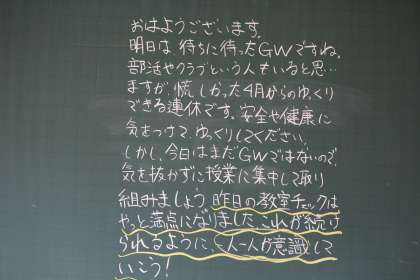 おはようございます。
明日は待ちに待ったGWですね。
部活やクラブという人もいると思…
ますが、慌しかった4月からのゆっくり
できる連休です。安全や健康に
気をつけて、ゆっくりしてください。
しかし、今日はまだGWではないので、
気を抜かずに授業に集中して取り
組みましょう。昨日の教室チェックは
やっと満点になりました。これが続け
られるように、一人一人が意識して
いこう!